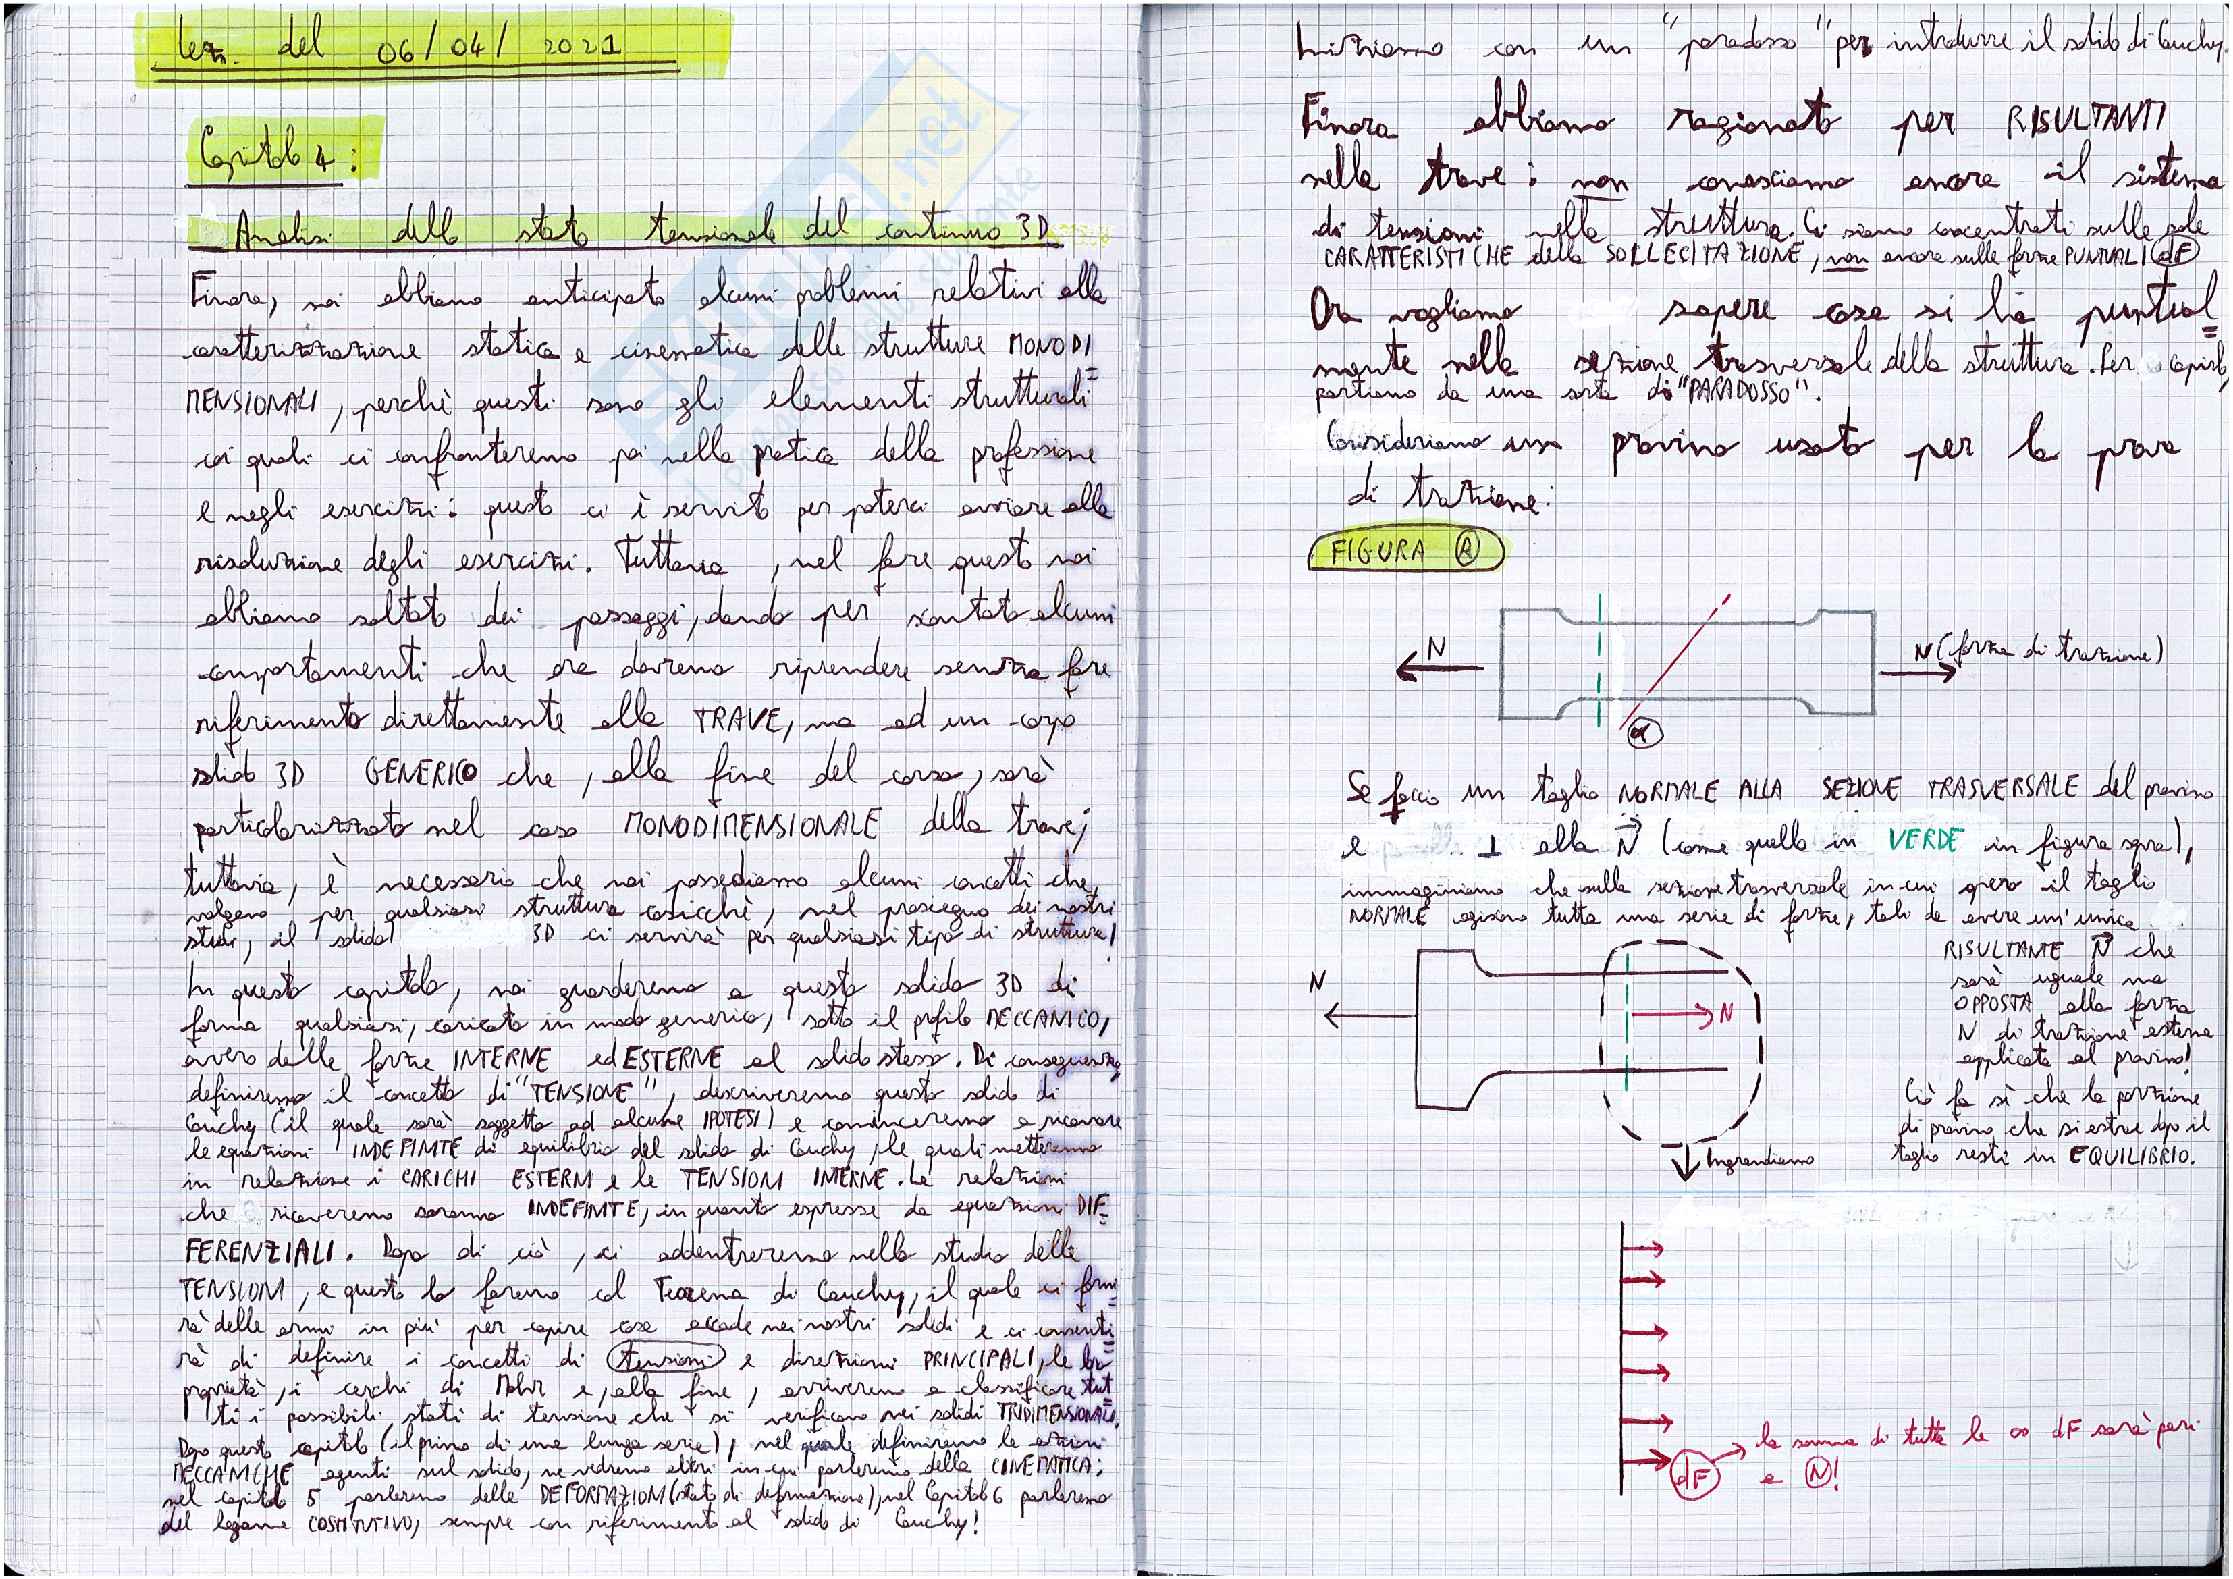 Lez. del 06/04/2021
Capitolo 4:
Analisi dello stato tensionale del continuo 3D
Finora, noi abbiamo anticipato alcuni problemi relativi alla
caratterizzazione statica e cinematica delle strutture MONODI=
MENSIONALI, perchè questi sono gli elementi strutturali
coi quali ci confronteremo poi nella pratica della professione
e negli esercizi: questo ci è servito per poterci avviare alla
risoluzione degli esercizi. Tuttavia, nel fare questo noi
abbiamo saltato dei passaggi, dando per scontato alcuni
comportamenti che ora dovremo riprendere senza fare
riferimento direttamente alla TRAVE, ma ad un corpo
solido 3D GENERICO che, alla fine del corso, sarà
particolarizzato nel caso MONODIMENSIONALE della trave;
tuttavia, è necessario che noi possediamo alcuni concetti che
valgano per qualsiasi struttura cosicchè, nel prosieguo dei nostri
studi, il solido 3D ci servirà per qualsiasi tipo di struttura!
In questo capitolo, noi guarderemo a questo solido 3D di
forma qualsiasi, caricato in modo generico, sotto il profilo MECCANICO,
ovvero delle forze INTERNE ed ESTERNE al solido stesso. Di conseguenza,
definiremo il concetto di "TENSIONE", descriveremo questo solido di
Cauchy (il quale sarà soggetto ad alcune IPOTESI) e cominceremo a ricavare
le equazioni INDEFINITE di equilibrio del solido di Cauchy, le quali metteranno
in relazione i CARICHI ESTERNI e le TENSIONI INTERNE. Le relazioni
che ricaveremo saranno INDEFINITE, in quanto espresse da equazioni DIF=
FERENZIALI. Dopo di ciò, ci addentreremo nello studio delle
TENSIONI, e questo lo faremo col Teorema di Cauchy, il quale ci forni=
rà delle armi in più per capire cosa accade nei nostri solidi e ci consenti=
rà di definire i concetti di tensioni e direzioni PRINCIPALI, le loro
proprietà, i cerchi di Mohr e, alla fine, arriveremo a classificare tut=
ti i possibili stati di tensione che si verificano nei solidi TRIDIMENSIONALI.
Dopo questo capitolo (il primo di una lunga serie), nel quale definiremo le azioni
MECCANICHE agenti sul solido, ne vedremo altri in cui parleremo della CINEMATICA;
nel capitolo 5 parleremo delle DEFORMAZIONI (stato di deformazione), nel Capitolo 6 parleremo
del legame COSTITUTIVO, sempre con riferimento al solido di Cauchy!
Iniziamo con un "paradosso" per introdurre il solido di Cauchy.
Finora abbiamo ragionato per RISULTANTI
nella trave: non conosciamo ancora il sistema
di tensioni nella struttura. Ci siamo concentrati sulle sole
CARATTERISTICHE della SOLLECITAZIONE, non ancora sulle forze PUNTUALI dF
Ora vogliamo sapere cosa si ha puntual=
mente nella sezione trasversale della struttura. Per capirlo,
partiamo da una sorta di "PARADOSSO".
Consideriamo un provino usato per la prova
di trazione:
FIGURA A
N
N (forza di trazione)
α
Se faccio un taglio NORMALE ALLA SEZIONE TRASVERSALE del provino
e ⊥ alla N (come quella in VERDE in figura sopra),
immaginiamo che sulla sezione trasversale in cui opero il taglio
NORMALE agiscano tutta una serie di forze, tali da avere un'unica
RISULTANTE N che
sarà uguale ma
OPPOSTA alla forza
N di trazione esterna
applicata al provino!
Ciò fa sì che la porzione
di provino che si estrae dopo il
taglio resti in EQUILIBRIO.
N
N
Ingrandiamo
dF
la somma di tutte le ∞ dF sarà pari
a N!